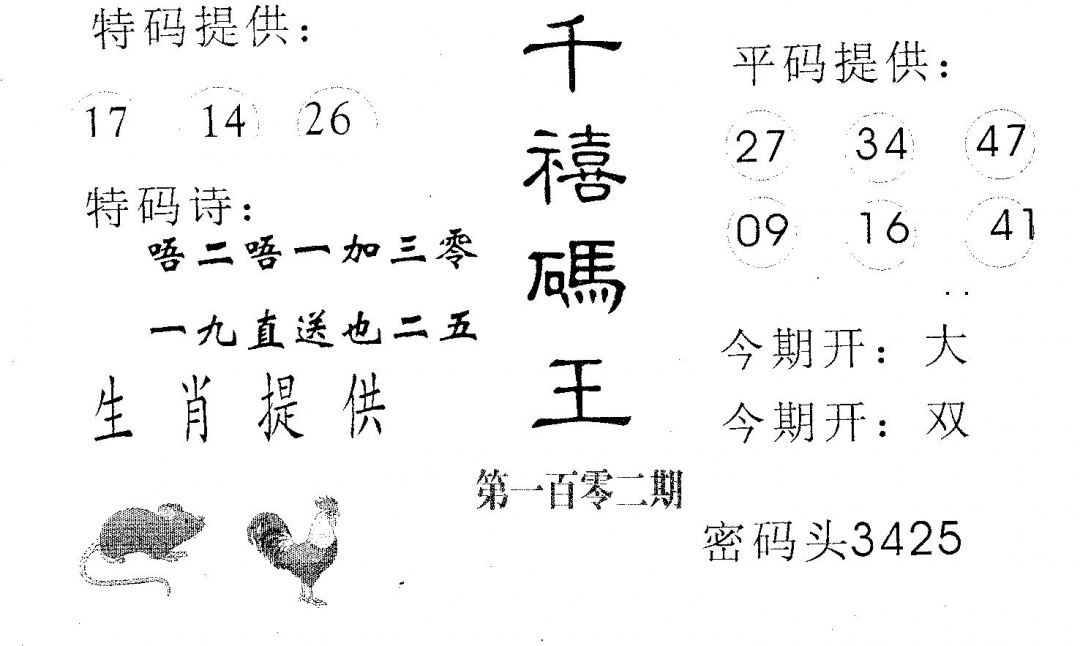 特码提供：
17 14 26
特码诗：
唔二唔一加三零
一九直送也二五
生肖提供
千禧碼王
第一百零二期
平码提供：
27 34 47
09 16 41
今期开：大
今期开：双
密码头3425